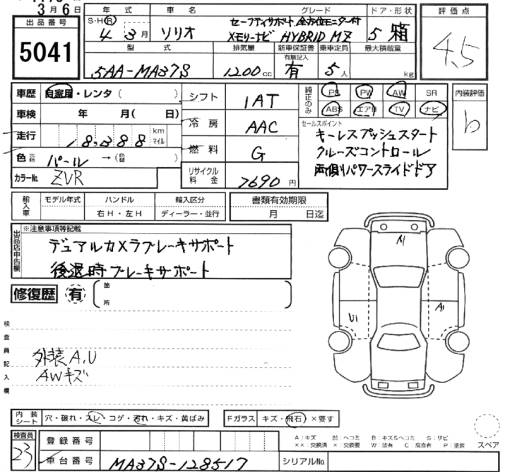 3月6日
出品番号 5041
年式 車名 グレード ドア・形状 評価点
S・H・R 4年 3月 ソリオ セーフティサポート 全方位モニター付 メモリーナビ HYBRID MZ 5 箱 4.5
型式 排気量 新車保証書 乗車定員 最大積載量
有無記入
5AA-MA37S 1200cc 有 5人 kg
車歴 自家用・レンタ( )
車検 年 月( 日)
走行 18,388 km マイル
色 元色 パール →(色替 )
カラーNo. ZVR
シフト 1AT
冷房 AAC
燃料 G
リサイクル料金 7690円
純正のみ PS PW AW SR
ABS エアB TV ナビ
内装評価 b
セールスポイント
キーレスプッシュスタート
クルーズコントロール
両側パワースライドドア
輸入車 モデル年式 ハンドル 輸入区分
右H・左H ディーラー・並行
書類有効期限
月 日迄
出品店申告欄 ※注意事項等記載
デュアルカメラブレーキサポート
後退時ブレーキサポート
修復歴 有 箇所
検査員記入欄
外装A,U
AWキズ
A1
U1
A1
内装シート 穴・破れ・スレ・コゲ・汚れ・キズ・黄ばみ
Fガラス キズ・飛石・×要す
スペア
検査員 23
登録番号
車台番号 MA37S-128517
シリアルNo.
A:キズ U:ヘコミ B:キズ&ヘコミ S:サビ
××:交換済 ×:交換要 W:波有 C:腐食有 P:塗装